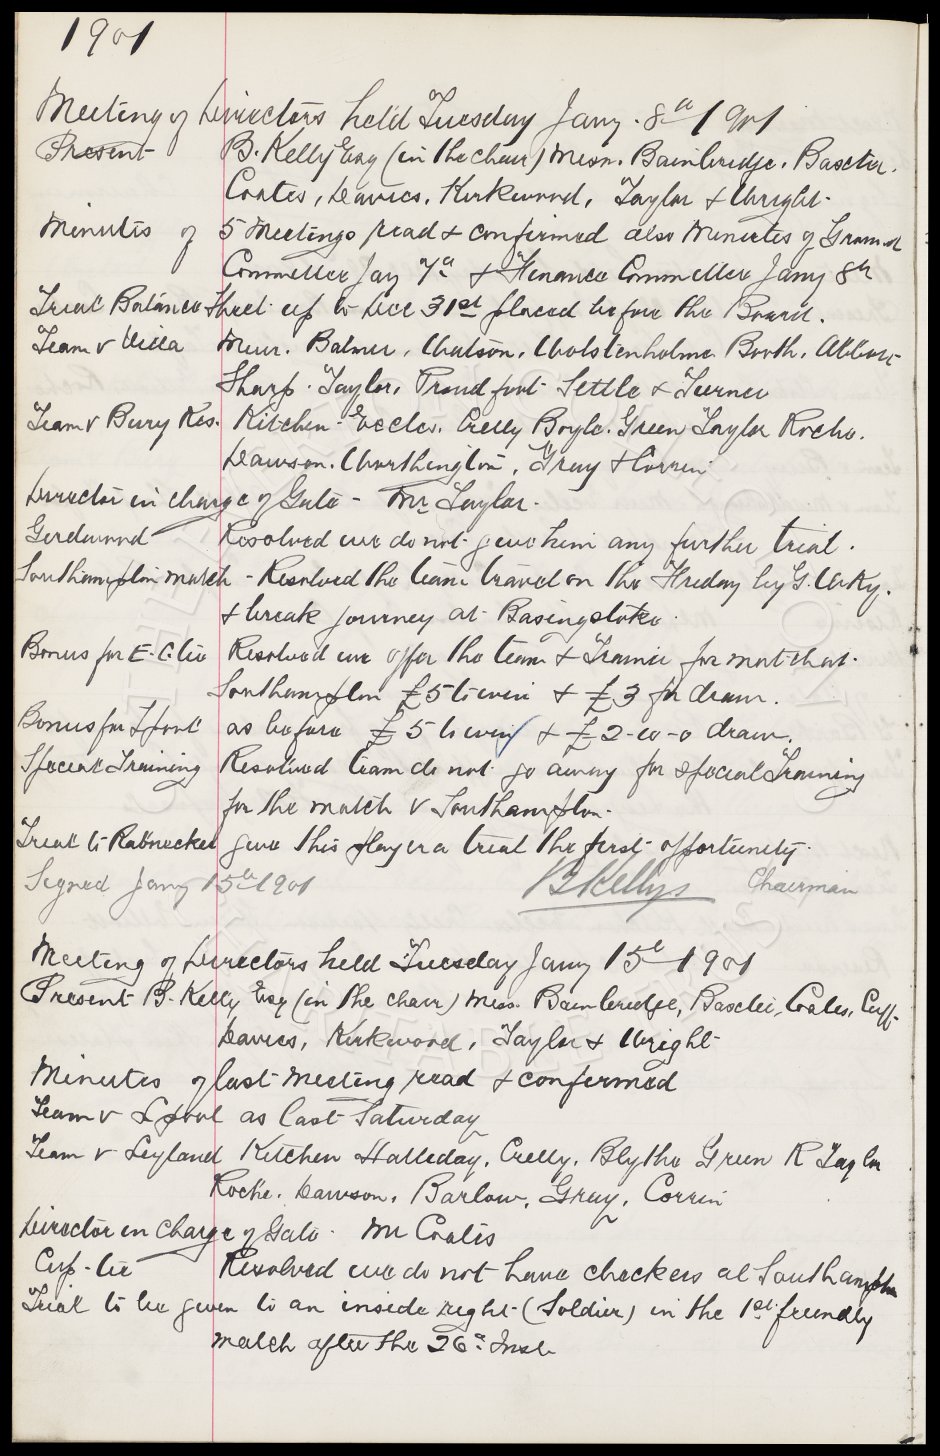 1901
Meeting of Directors held Tuesday Jany. 8th 1901
Present B. Kelly Esq (in the chair) Messrs. Bainbridge, Baxter.
Coates, Davies, Kirkwood, Taylor & Wright.
Minutes of 5 Meetings read & confirmed also Minutes of Ground
Committee Jany 7th & Finance Committee Jany 8th
Trial Balance Sheet up to Dec 31st placed before the Board.
Team v Villa Muir. Balmer, Watson, Wolstenholme Booth, Abbott
Sharp. Taylor, Proudfoot Settle & Turner
Team v Bury Res. Kitchen Eccles, Crelly Boyle. Green Taylor Roche.
Dawson. Worthington, Gray & Corrin
Director in charge of Gate - Mr Taylor.
Resolved we do not give him any further trial.
Southampton match - Resolved the team travel on the Friday by G. W Ry.
& break journey at Basingstoke.
Bonus for E. C. tie Resolved we offer the team & Trainer for match at.
Southampton £5 to win & £3 for draw.
Bonus for L'pool as before £5 to win & £2-10-0 draw.
Special Training Resolved team do not go away for special Training
for the match v Southampton.
Trial to Rabnecker give this player a trial the first opportunity.
Signed Jany 15th 1901 B Kelly Chairman
Meeting of Directors held Tuesday Jany 15th 1901
Present B. Kelly Esq (in the chair) Mess. Bainbridge, Baxter, Coates, Cuff.
Davies, Kirkwood, Taylor & Wright
Minutes of last meeting read & confirmed
Team v L'pool as last Saturday
Team v Leyland Kitchen Halliday, Crelly, Blythe Green R Taylor
Roche. Dawson, Barlow, Gray, Corrin
Director in charge of Gate. Mr Coates
Cup-tie Resolved we do not have checkers at Southampton
Trial to be given to an inside right (Soldier) in the 1st friendly
match after the 26th Inst